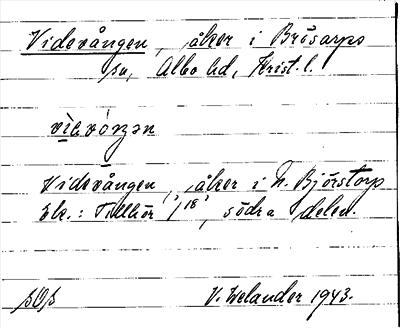 Videvången, åker i Brösarps
sn, Albo hd, Krist. l.
Videvången, åker i N. Björstorp
Ek.: Tillhör 1/18, södra delen.
V. Welander 1943.